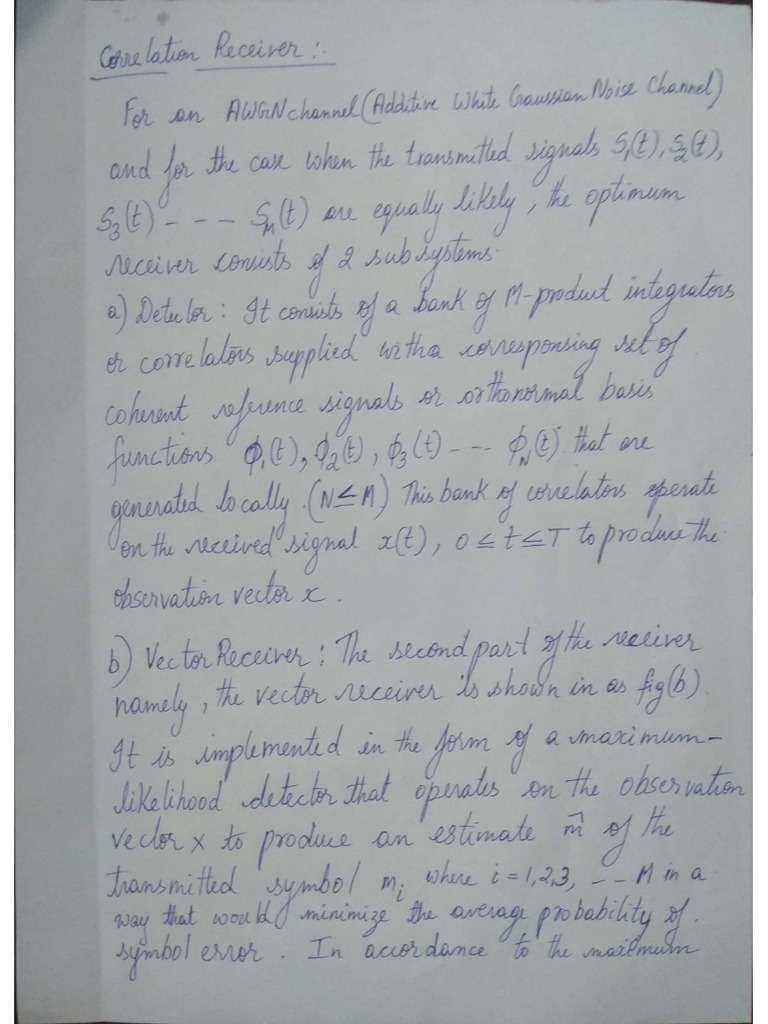 Correlation Receiver :-
For an AWGN channel (Additive White Gaussian Noise Channel)
and for the case when the transmitted signals S₁(t), S₂(t),
S₃(t) - - - Sₘ(t) are equally likely, the optimum
receiver consists of 2 subsystems.
a) Detector : It consists of a bank of M-product integrators
or correlators supplied with a corresponsing set of
coherent reference signals or orthonormal basis
functions ϕ₁(t), ϕ₂(t), ϕ₃(t) - - - ϕN(t) that are
generated locally. (N≤M) This bank of correlators operate
on the received signal x(t), 0 ≤ t ≤ T to produce the
observation vector x.
b) Vector Receiver : The second part of the receiver
namely, the vector receiver is shown in as fig(b).
It is implemented in the form of a maximum-
likelihood detector that operates on the observation
vector x to produce an estimate m̂ of the
transmitted symbol mᵢ where i = 1,2,3, - - M in a
way that would minimize the average probability of
symbol error. In accordance to the maximum